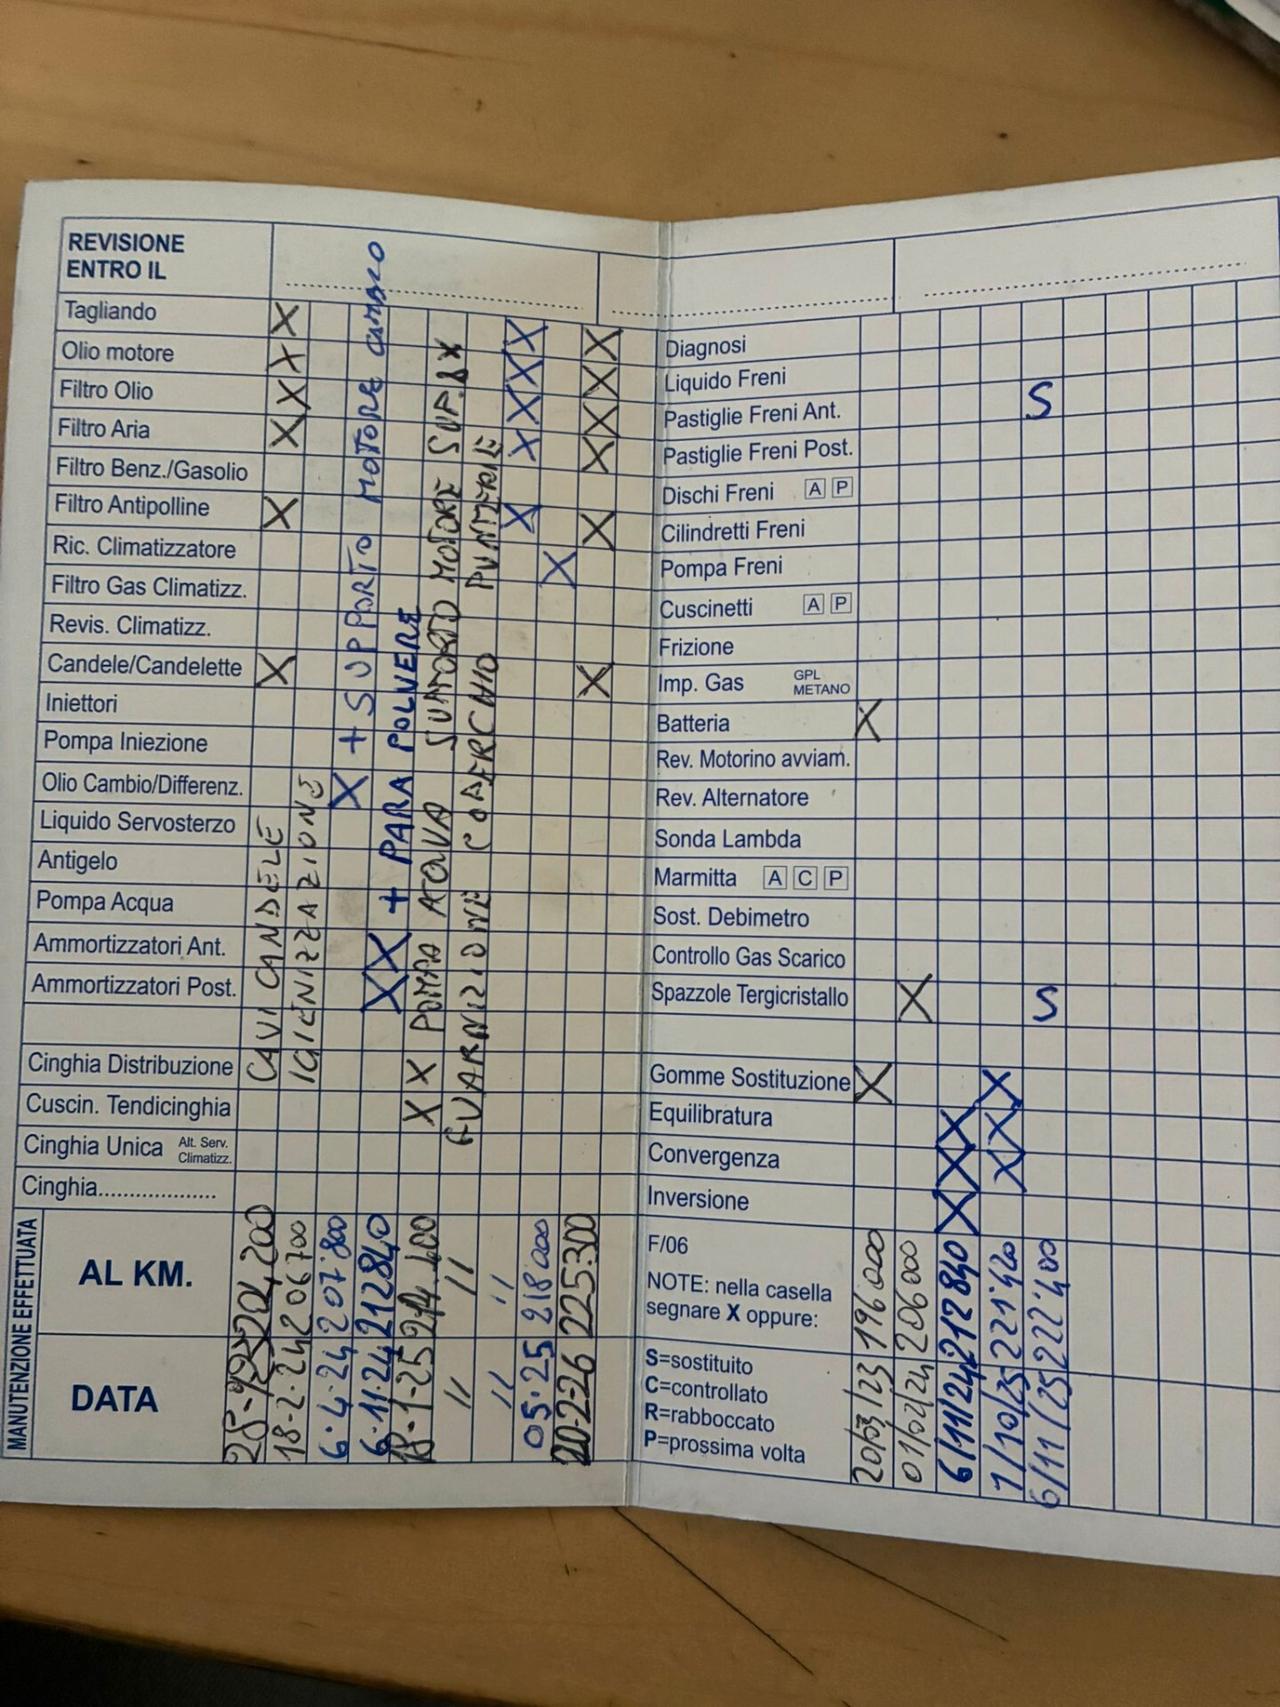 REVISIONE
ENTRO IL
Tagliando X X X
Olio motore X X X
Filtro Olio X X X
Filtro Aria X X X
Filtro Benz./Gasolio
Filtro Antipolline X X X
Ric. Climatizzatore X
Filtro Gas Climatizz.
Revis. Climatizz.
Candele/Candelette X X
Iniettori
Pompa Iniezione
Olio Cambio/Differenz. X
Liquido Servosterzo
Antigelo
Pompa Acqua
Ammortizzatori Ant. X
Ammortizzatori Post. X
Cinghia Distribuzione X
Cuscin. Tendicinghia X
Cinghia Unica Alt. Serv. Climatizz.
Cinghia....................
CAVI CANDELE
IGIENIZZAZIONE
+ SUPPORTO MOTORE CAMBIO
+ PARA POLVERE
POMPA ACQUA SUPPORTO MOTORE SUP. DX
GUARNIZIONE COPERCHIO PUNTERIE
MANUTENZIONE EFFETTUATA
AL KM.
204,200
206700
207'800
212840
214.400
"
"
218000
225300
DATA
18-2-24
6-4-24
6-11-24
18-1-25
"
"
05-25
20-2-26
Diagnosi
Liquido Freni
Pastiglie Freni Ant. S
Pastiglie Freni Post.
Dischi Freni A P
Cilindretti Freni
Pompa Freni
Cuscinetti A P
Frizione
Imp. Gas GPL METANO
Batteria X
Rev. Motorino avviam.
Rev. Alternatore
Sonda Lambda
Marmitta A C P
Sost. Debimetro
Controllo Gas Scarico
Spazzole Tergicristallo X S
Gomme Sostituzione X X
Equilibratura X X
Convergenza X X
Inversione X
F/06
NOTE: nella casella
segnare X oppure:
S=sostituito
C=controllato
R=rabboccato
P=prossima volta
20/03/23 196000
01/02/24 206000
6/11/24 212840
7/10/25 221'420
6/11/25 222'400